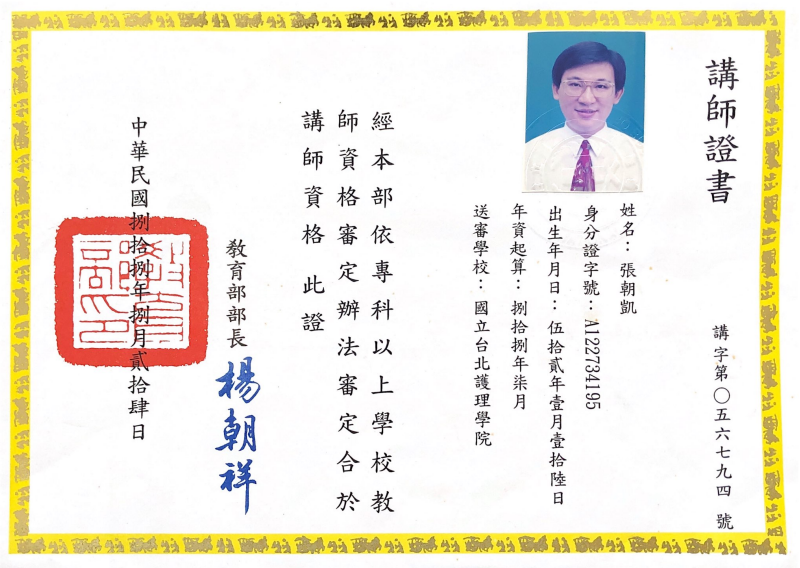 講師證書
講字第〇五六七九四號
姓名：張朝凱
身分證字號：A122734195
出生年月日：伍拾貳年壹月壹拾陸日
年資起算：捌拾捌年柒月
送審學校：國立台北護理學院
經本部依專科以上學校教
師資格審定辦法審定合於
講師資格 此證
教育部部長 楊朝祥
中華民國捌拾捌年捌月貳拾肆日